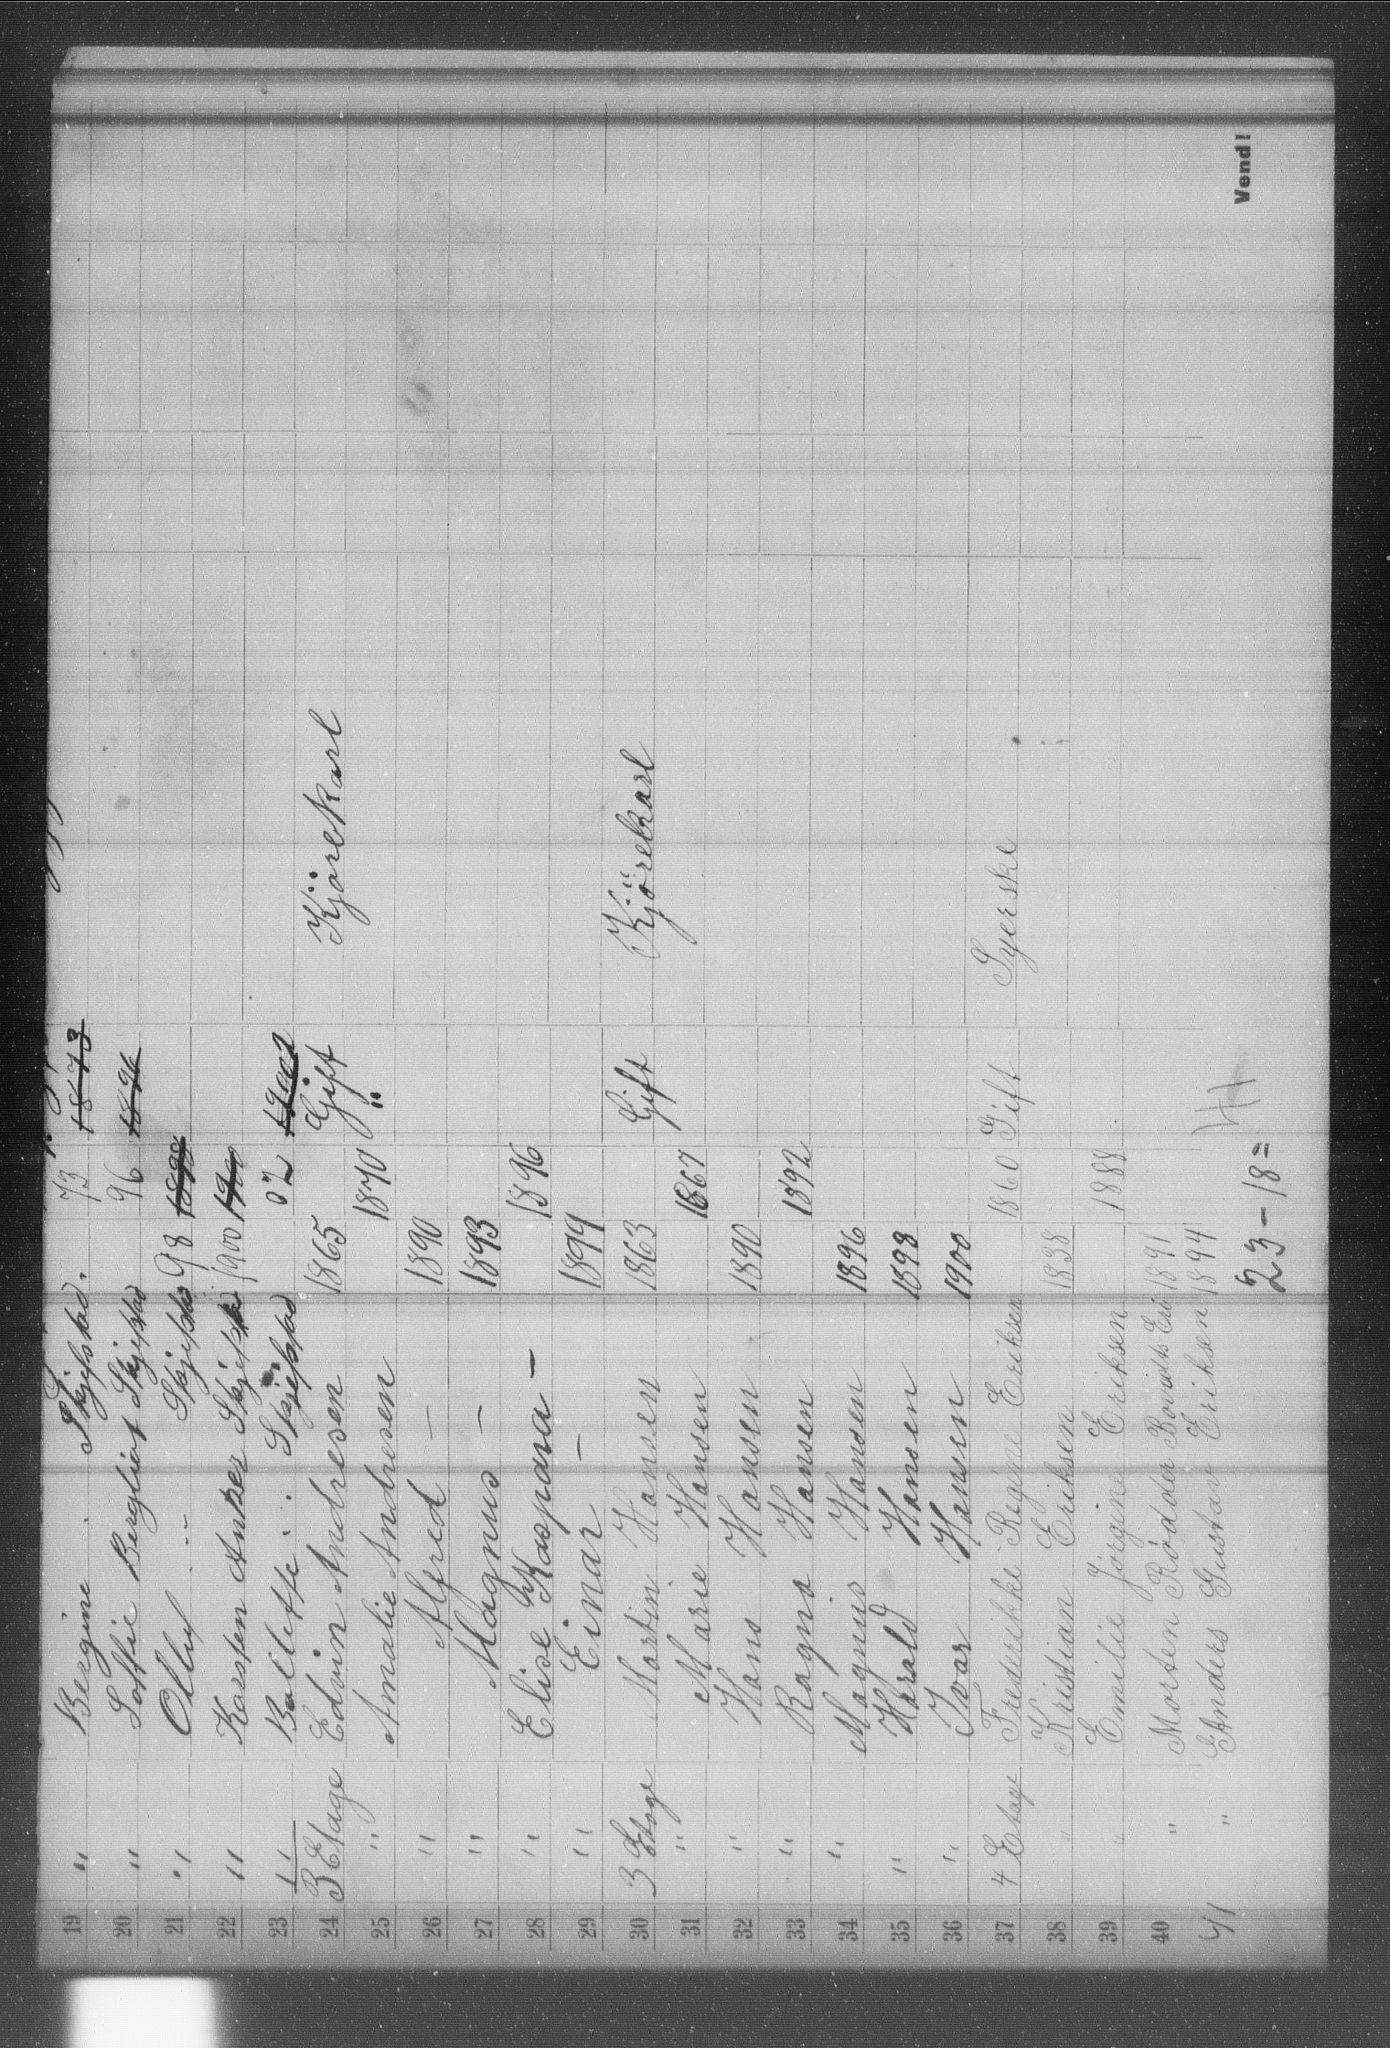 19 " Bergine Skjefstad. 73 1873
20 " Soffie Bergliot Skjefstad 96 1896
21 " Olluf Skjefstad 98 1898
22 " Karsten Anker Skjefstad 1900 1900
23 " Ballette Skjefstad 02 19002
24 3 Etage Edvin Andresen 1865 Gift Kjörekarl
25 " Amalie Andresen 1870 "
26 " Alfred — 1890
27 " Magnus — 1893
28 " Elise Kaspara — 1896
29 " Einar — 1899
30 3 Etage Martin Hansen 1863 Gift Kjörekarl
31 " Marie Hansen 1867 "
32 " Hans Hansen 1890
33 " Ragna Hansen 1892
34 " Magnus Hansen 1896
35 " Harald Hansen 1898
36 " Ivar Hansen 1900
37 4 Etage Frederikke Regine Eriksen 1860 Gift Syerske
38 " Kristian Eriksen 1838
39 " Emilie Jörgine Eriksen 1888
40 " Morten Rödder Eri 1891
41 " Anders Gustav Eriksen 1894
23 – 18 =
Vend!